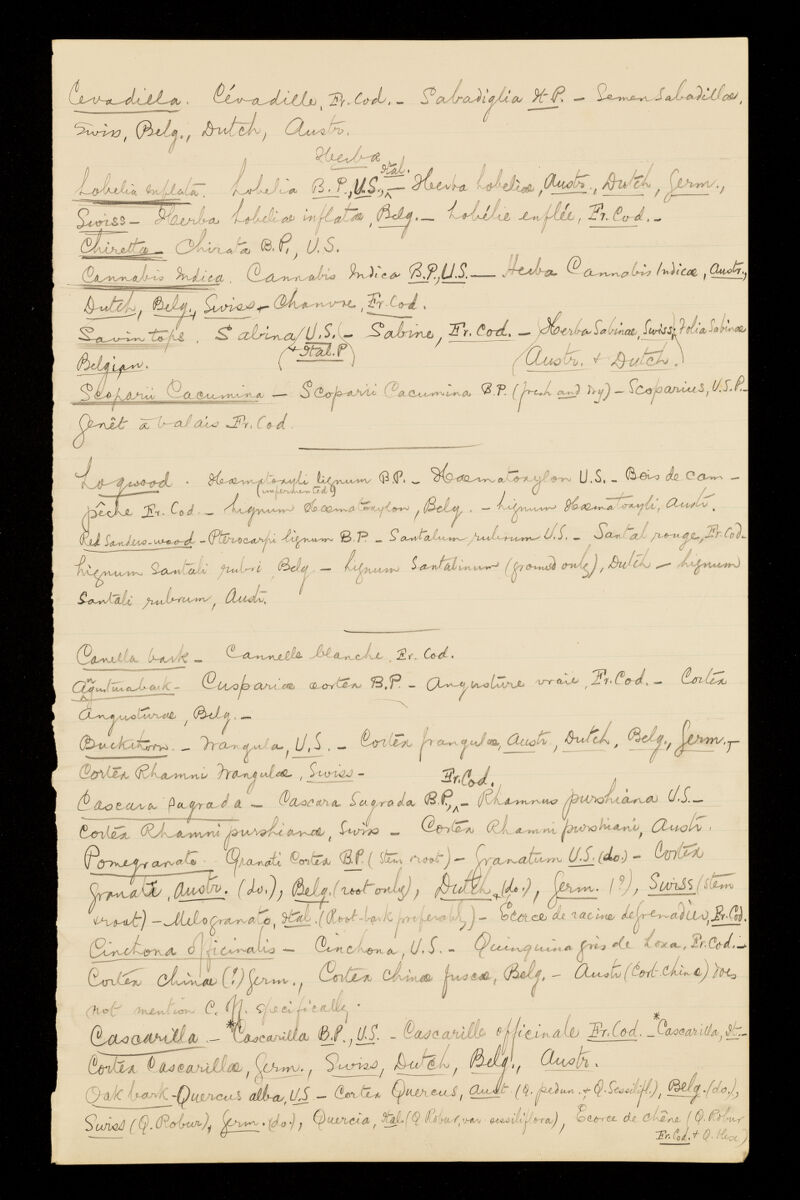 Cevadilla. Cévadille, Fr. Cod. – Sabadiglia It P. – Semen Sabadillæ,
Swiss, Belg., Dutch, Austr.
Herba
Lobelia inflata. Lobelia B.P., U.S., Ital. – Herba Lobeliæ, Austr., Dutch, Germ.,
Swiss – Herba Lobeliæ inflatæ, Belg. – Lobélie enflée, Fr. Cod. –
Chiretta – Chirata B.P., U.S.
Cannabis Indica. Cannabis Indica B.P., U.S. — Herba Cannabis Indicæ, Austr.,
Dutch, Belg., Swiss – Chanvre, Fr. Cod.
Savin tops. Sabina U.S. – Sabine, Fr. Cod. – Herba Sabinæ, Swiss; Folia Sabinæ
(+ Ital. P) (Austr. + Dutch.)
Belgian.
Scoparii Cacumina – Scoparii Cacumina B.P. (fresh and dry) – Scoparius, U.S.P. –
Genêt à balais Fr. Cod.
Logwood. Hæmatoxyli lignum B.P. – Hæmatoxylon U.S. – Bois de Cam-
(unfermented)
pêche Fr. Cod. – Lignum Hæmatoxylon, Belg. – Lignum Hæmatoxyli, Austr.
Red Sanders-wood – Pterocarpi lignum B.P. – Santalum rubrum U.S. – Santal rouge, Fr. Cod. –
Lignum Santali rubri, Belg – Lignum Santalinum (ground only), Dutch – Lignum
Santali rubrum, Austr.
Canella bark – Cannelle blanche, Fr. Cod.
Angustura bark – Cuspariæ cortex B.P. – Angusture vraie, Fr. Cod. – Cortex
Angusturæ, Belg. –
Buckthorn. – Frangula, U.S. – Cortex frangulæ, Austr., Dutch, Belg., Germ., –
Cortex Rhamni Frangulæ, Swiss –
Cascara Sagrada – Cascara Sagrada B.P., Fr. Cod. – Rhamnus purshiana U.S. –
Cortex Rhamni purshianæ, Swiss – Cortex Rhamni purshiani, Austr.
Pomegranate. Granati Cortex B.P. (Stem & root) – Granatum U.S. (do.) – Cortex
Granati, Austr. (do.), Belg. (root only), Dutch (do.), Germ. (?), Swiss (stem
& root) – Melogranato, Ital. (Root-bark preferably) – Ecorce de racine de grenadier, Fr. Cod.
Cinchona officinalis – Cinchona, U.S. – Quinquina gris de Loxa, Fr. Cod. –
Cortex Chinæ (?) Germ., Cortex Chinæ fuscæ, Belg. – Austr (Cort. Chinæ) does
not mention C. off. specifically.
Cascarilla – *Cascarilla B.P., U.S. – Cascarille officinale Fr. Cod. – *Cascarilla, It. –
Cortex Cascarillæ, Germ., Swiss, Dutch, Belg., Austr.
Oak bark – Quercus alba, U.S – Cortex Quercus, Aust (Q. pedun. + Q. Sessilifl.), Belg. (do.),
Swiss (Q. Robur), Germ. (do.), Quercia, Ital. (Q Robur, var. sessiliflora), Ecorce de chêne (Q. Robur
Fr. Cod. + Q. Ilex)